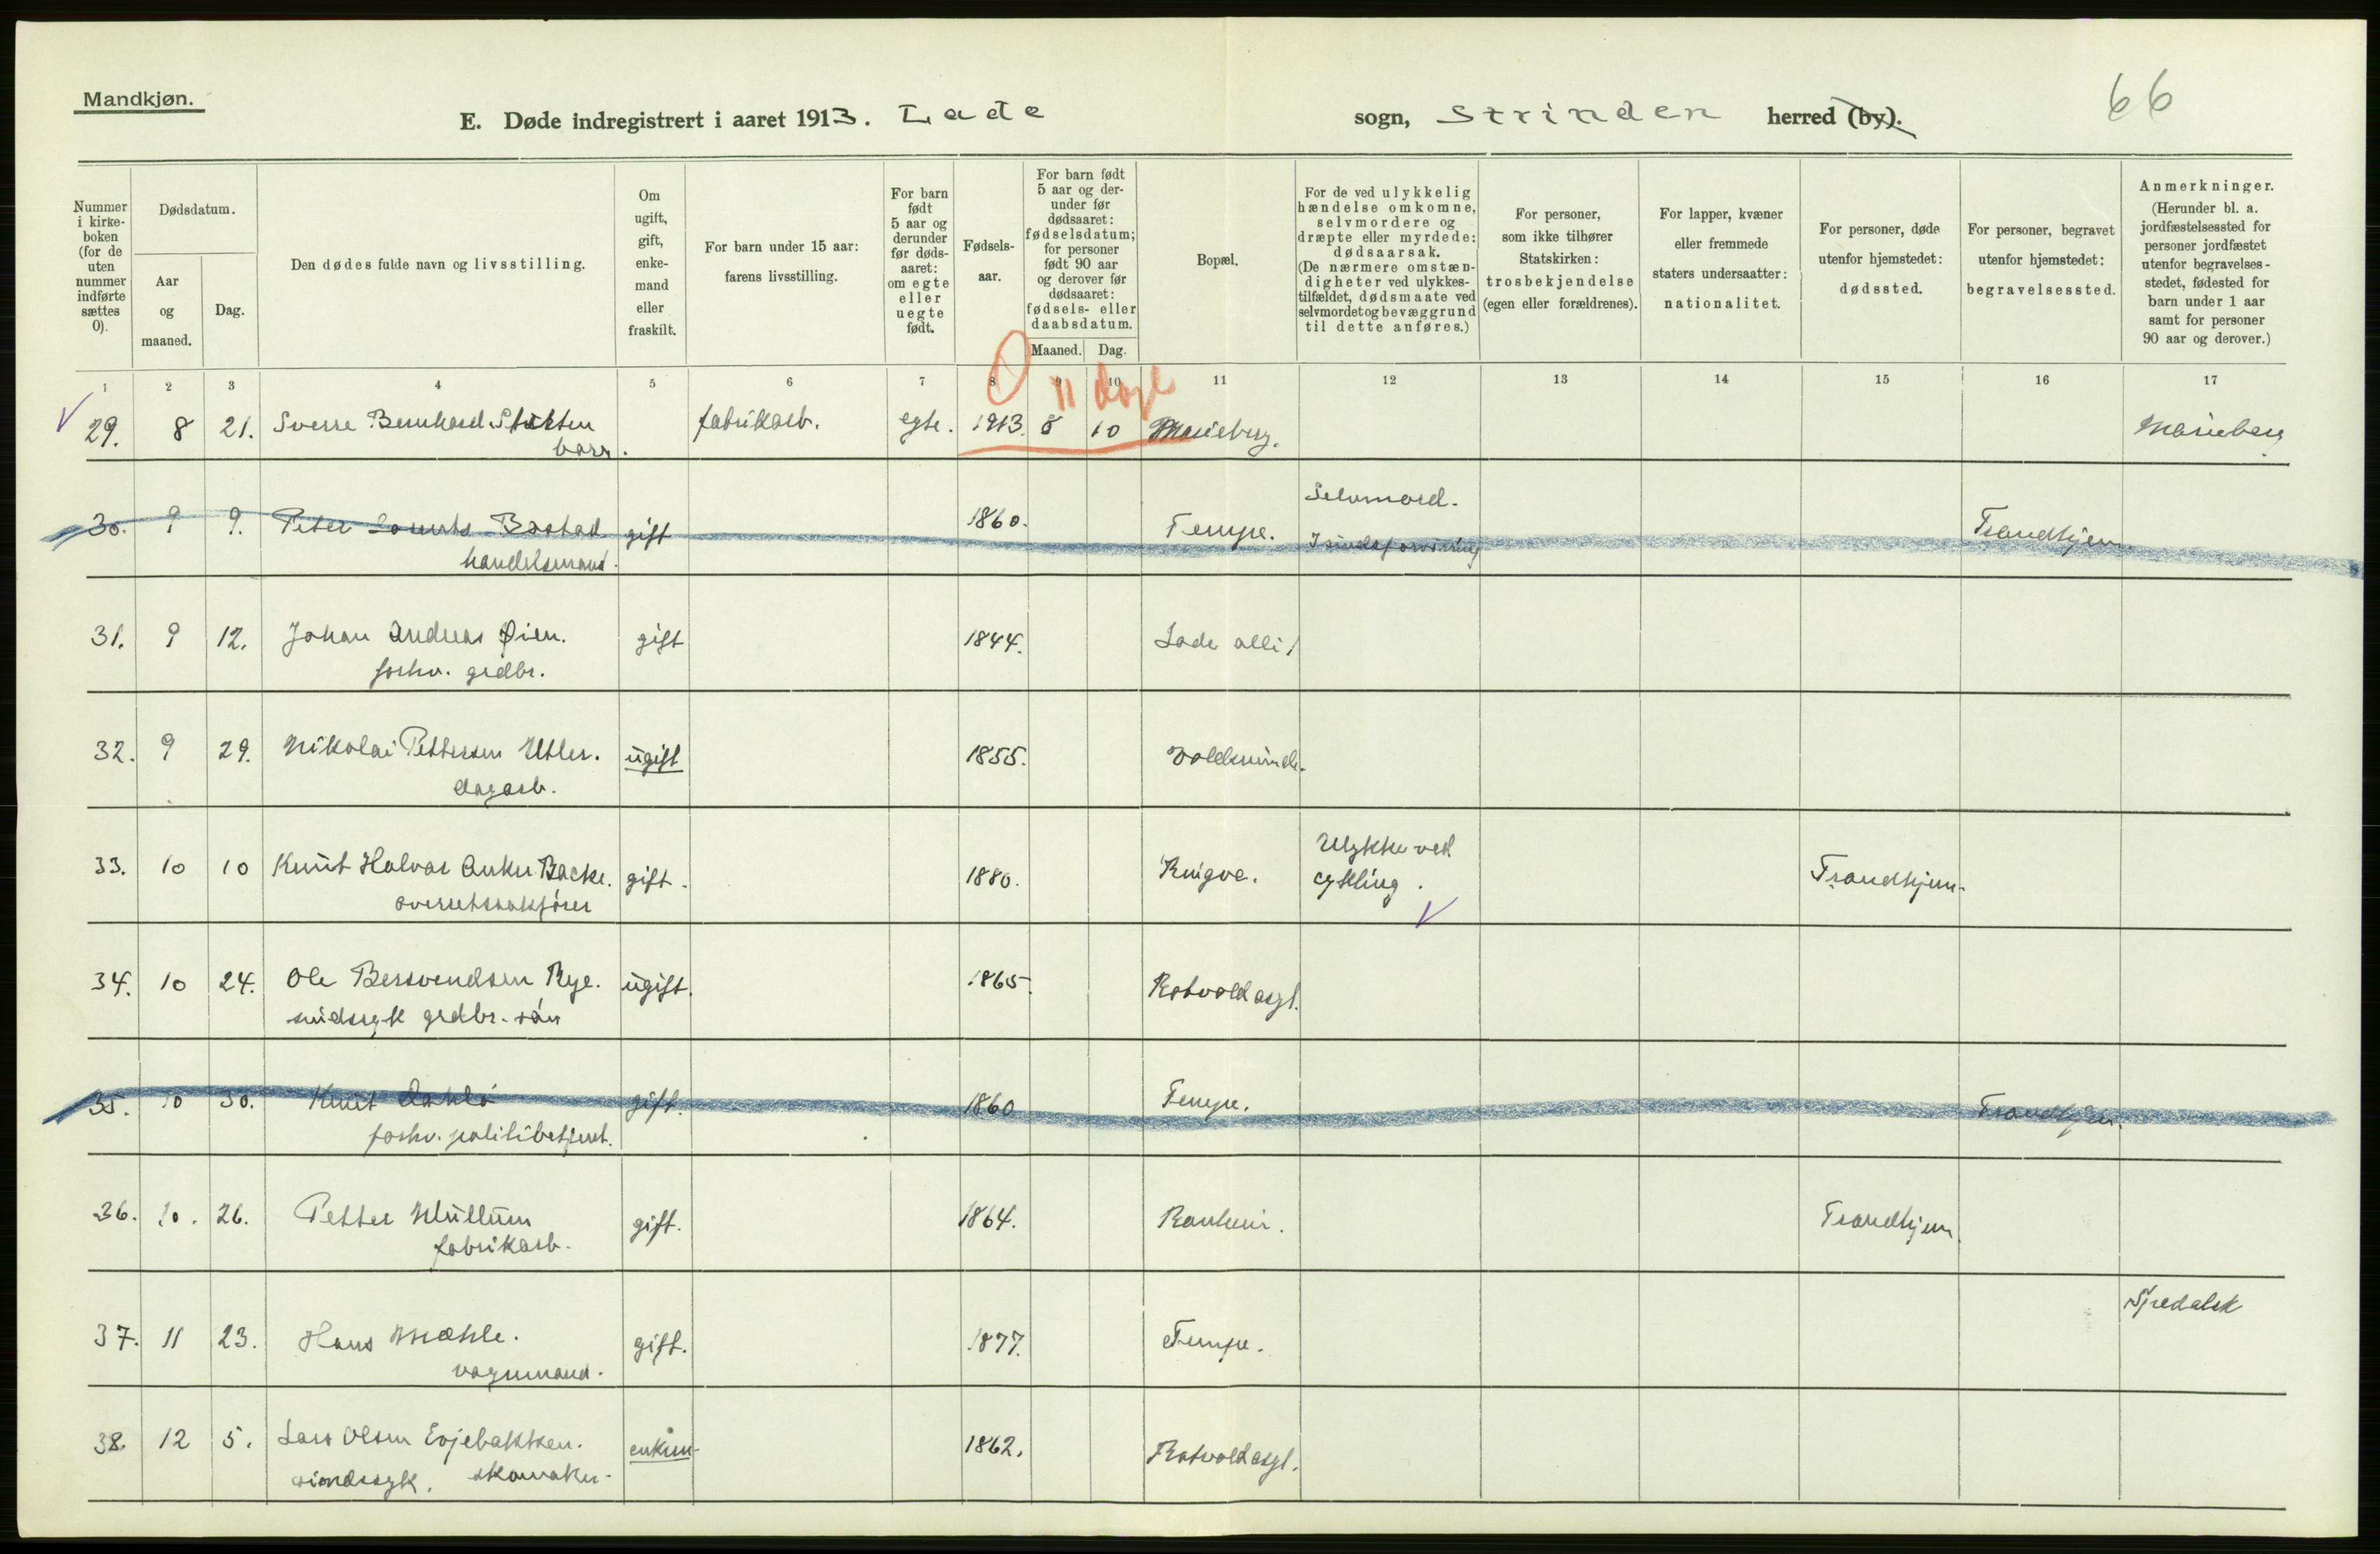 Mandkjøn.
66
E. Døde indregistrert i aaret 1913. Lade sogn, Strinden herred (by).
Nummer i kirke- boken (for de uten nummer indførte sættes 0).
Dødsdatum.
Aar og maaned.
Dag.
Den dødes fulde navn og livsstilling.
Om ugift, gift, enke- mand eller fraskilt.
For barn under 15 aar: farens livsstilling.
For barn født 5 aar og derunder før døds- aaret: om egte eller uegte født.
Fødsels- aar.
For barn født 5 aar og der- under før dødsaaret: fødselsdatum; for personer født 90 aar og derover før dødsaaret: fødsels- eller daabsdatum.
Maaned. Dag.
Bopæl.
For de ved ulykkelig hændelse omkomne, selvmordere og dræpte eller myrdede: dødsaarsak. (De nærmere omstæn- digheter ved ulykkes- tilfældet, dødsmaate ved selvmordet og bevæggrund til dette anføres.)
For personer, som ikke tilhører Statskirken: trosbekjendelse (egen eller forældrenes).
For lapper, kvæner eller fremmede staters undersaatter: nationalitet.
For personer, døde utenfor hjemstedet: dødssted.
For personer, begravet utenfor hjemstedet: begravelsessted.
Anmerkninger. (Herunder bl. a. jordfæstelsessted for personer jordfæstet utenfor begravelses- stedet, fødested for barn under 1 aar samt for personer 90 aar og derover.)
1 2 3 4 5 6 7 8 9 10 11 12 13 14 15 16 17
0 11 dage
29. 8 21. Sverre Bernhard fabrikarb. egte. 1913. 8 10 Marieberg. Marieberg
barn.
30. 9 9. Peter Lorents Bostad gift 1860. Tempe. Selvmord. I sindsforvirring Trondhjem
handelsmand.
31. 9 12. Johan Andreas Øien. gift 1844. Lade alle 1
forhv. grdbr.
32. 9 29. Nikolai Pettersen Utler. ugift 1855. Voldsminde.
dagarb.
33. 10 10 Knut Halvar Anker Backe. gift. 1880. Ringve. Ulykke ved cykling. Trondhjem.
overretssakfører
34. 10 24. Ole Bersvendsen Rye. ugift. 1865. Rotvold asyl.
sindssyk grdbr. søn
35. 10 30. Knut gift. 1860 Tempe. Trondhjem.
forhv. politibetjent.
36. 10. 26. Petter Mullum gift. 1864. Ranheim. Trondhjem
fabrikarb.
37. 11 23. Hans Mæhle. gift. 1877. Tempe. Stjørdalsk
vognmand.
38. 12 5. Lars Olsen Evjebakken. enkem- 1862. Rotvold asyl.
sindssyk. skomaker.